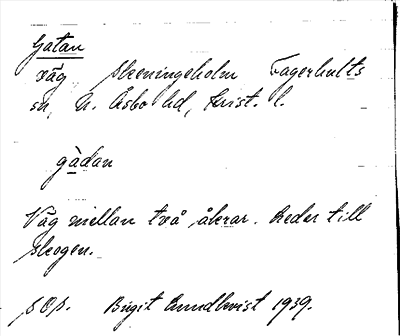 Gatan
väg Skeningeholm Fagerhults
sn, N. Åsbo hd, Krist. l.
gàdan
Väg mellan två åkrar. Leder till
skogen.
s. Op. Birgit Lundkvist 1939.